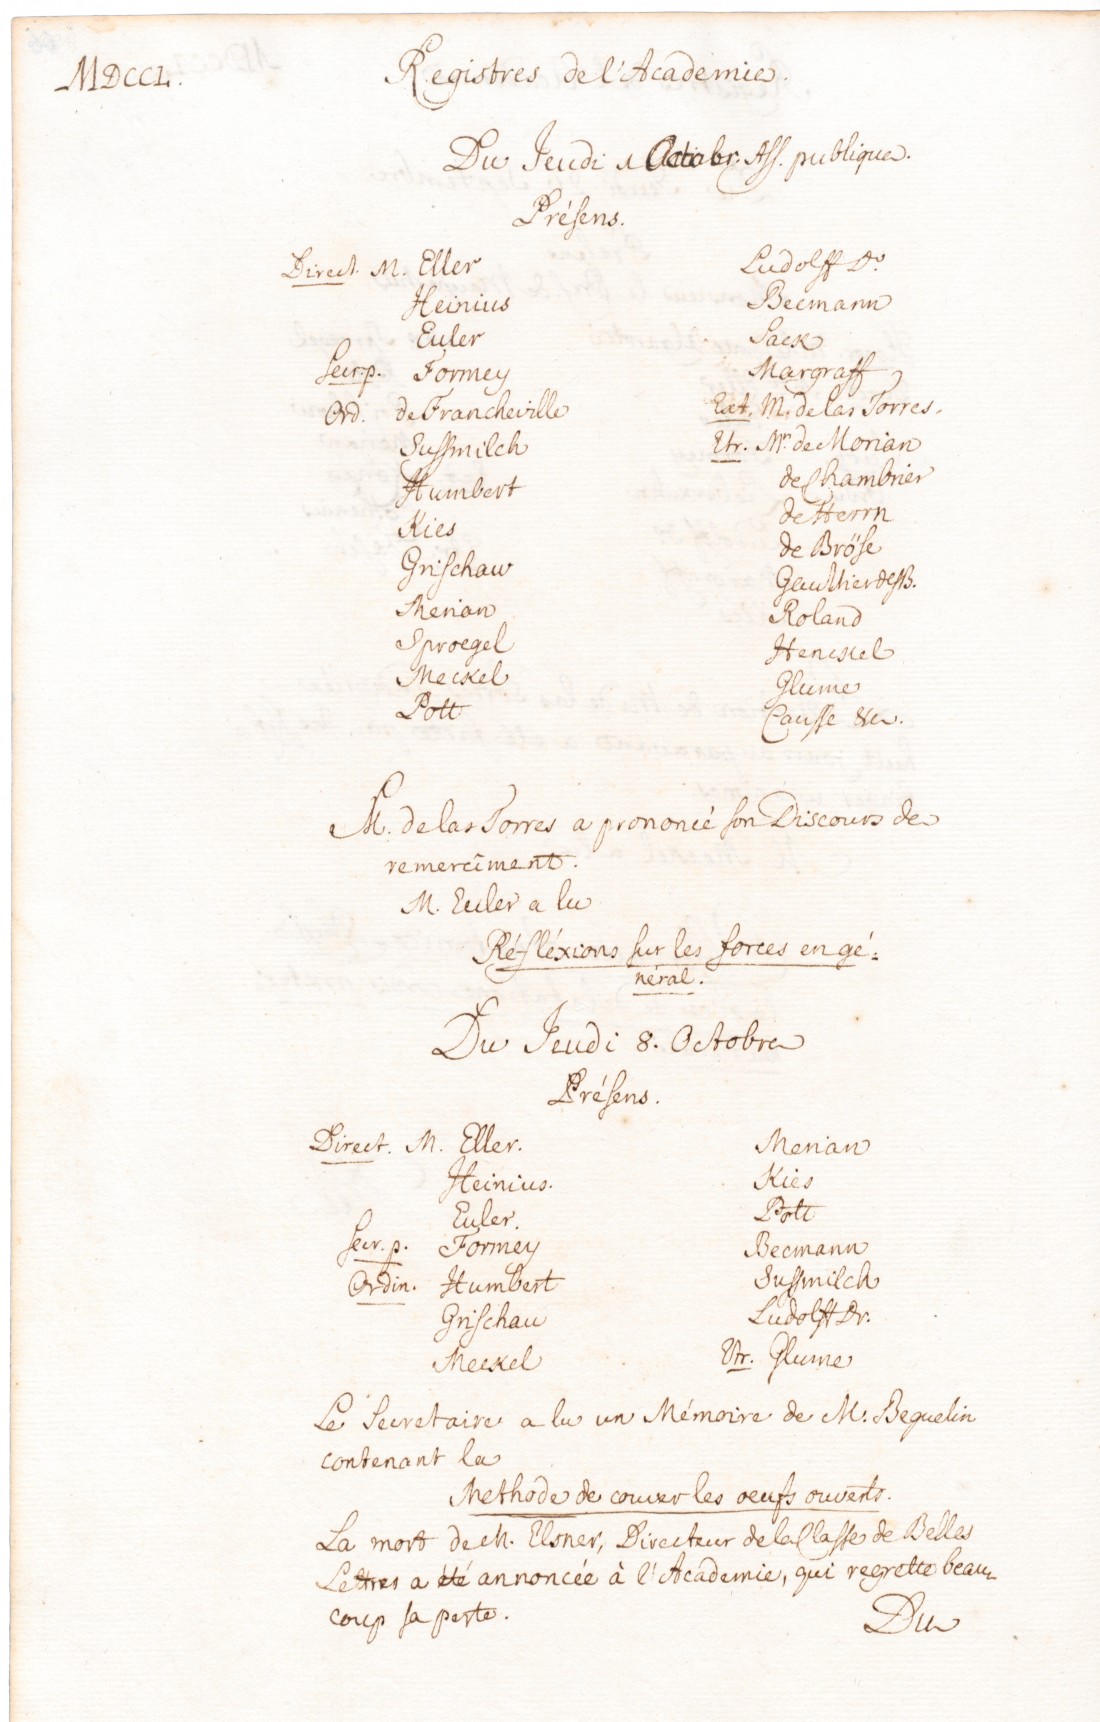 MDCCL.
Registres de l'Academie.
Du Jeudi 1 Octobr. Ass. publique.
Présens.
Direct. M. Eller
Heinius
Euler
Secr. p. Formey
Ord. de Francheville
Sussmilch
Humbert
Kies
Grischau
Merian
Sproegel
Meckel
Pott
Ludolff Dr
Becmann
Sack
Margraff
Ext. M. de las Torres.
Etr. Mr. de Morian
de Chambrier
de Herrn
de Bröse
Gaultier
Roland
Henckel
Glume
Causse &c.
M. de las Torres a prononcé son Discours de
remercîment.
M. Euler a lu
Réfléxions sur les forces en gé:
néral.
Du Jeudi 8. Octobre
Présens.
Direct. M. Eller.
Heinius.
Euler.
Secr. p. Formey
Ordin. Humbert
Grischau
Meckel
Merian
Kies
Pott
Becmann
Sussmilch
Ludolff Dr.
Etr. Glume
Le Secretaire a lu un Mémoire de M. Beguelin
contenant la
Methode de couver les oeufs ouverts.
La mort de M. Elsner, Directeur de la Classe de Belles
Lettres a été annoncée à l'Academie, qui regrette beau-
coup sa perte.
Du